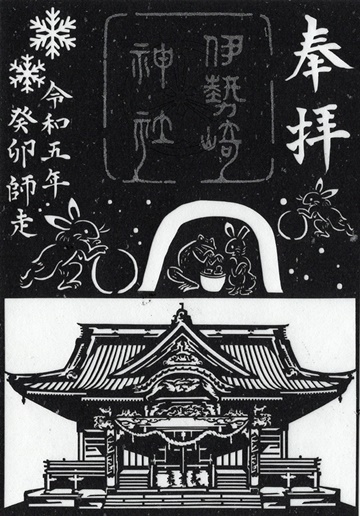 奉拝
伊勢崎
神社
令和五年
癸卯師走